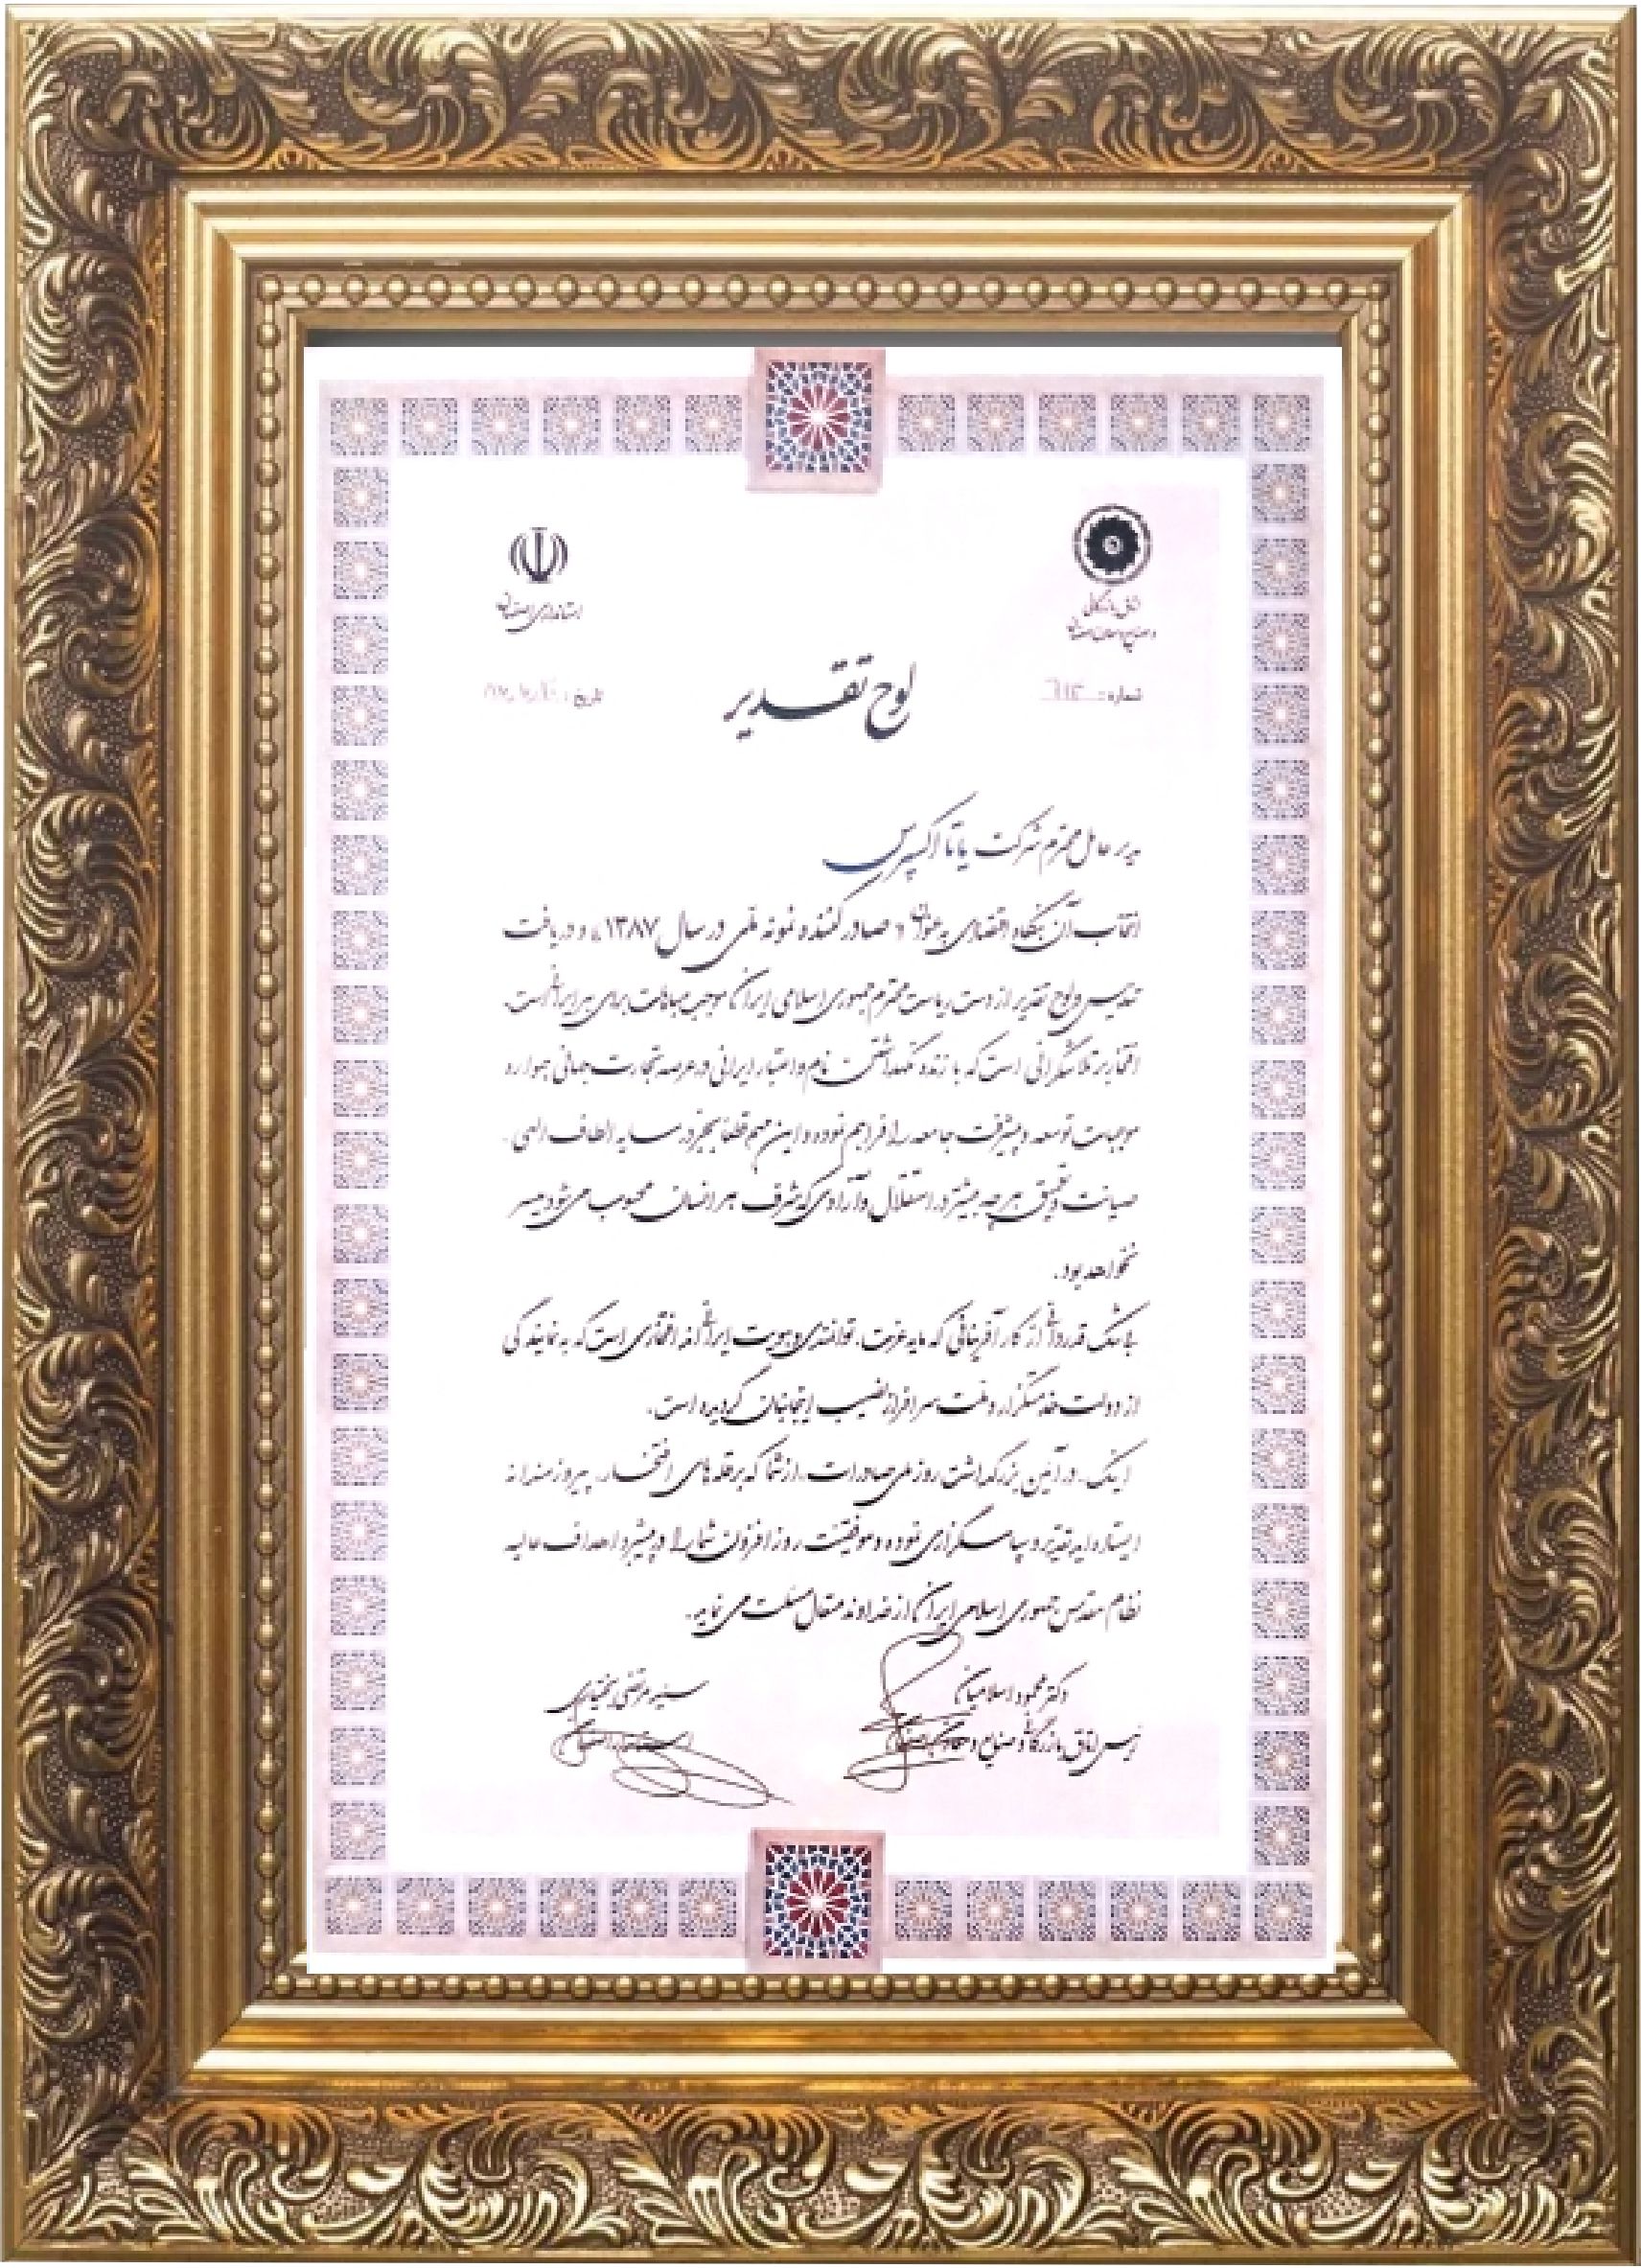 استانداری اصفهان
اتاق بازرگانی
و صنایع و معادن اصفهان
شماره:
تاریخ:
لوح تقدیر
مدیر عامل محترم شرکت یاتا اکسپرس
انتخاب آن بنگاه اقتصادی به عنوان «صادر کننده نمونه ملی در سال ۱۳۸۷» و دریافت
تندیس و لوح تقدیر از دست ریاست محترم جمهوری اسلامی ایران موجب مباهات برای هر ایرانی است.
افتخار بر تلاشگرانی است که با زنده نگهداشتن نام و اعتبار ایرانی در عرصه تجارت جهانی همواره
موجبات توسعه و پیشرفت جامعه را فراهم نموده و این مهم قطعاً بجز در سایه الطاف الهی،
صیانت و تعمیق هر چه بیشتر در استقلال و آزادی که شرف هر انسان محسوب می شود میسر
نخواهد بود.
با شک قدردانی از کار آفرینانی که مایه عزت، توانمندی و هویت ایرانی اند افتخاری است که به نمایندگی
از دولت خدمتگزار و ملت سرافراز نصیب اینجانبان گردیده است.
اینک، در آئین بزرگداشت روز ملی صادرات، از شما که بر قله های افتخار، پیروزمندانه
ایستاده اید تقدیر و سپاسگزاری نموده و موفقیت روز افزون شما را در پیشبرد اهداف عالیه
نظام مقدس جمهوری اسلامی ایران از خداوند متعال مسئلت می نماید.
دکتر محمود اسلامیان
رئیس اتاق بازرگانی و صنایع و معادن اصفهان
سید مرتضی بختیاری
استاندار اصفهان